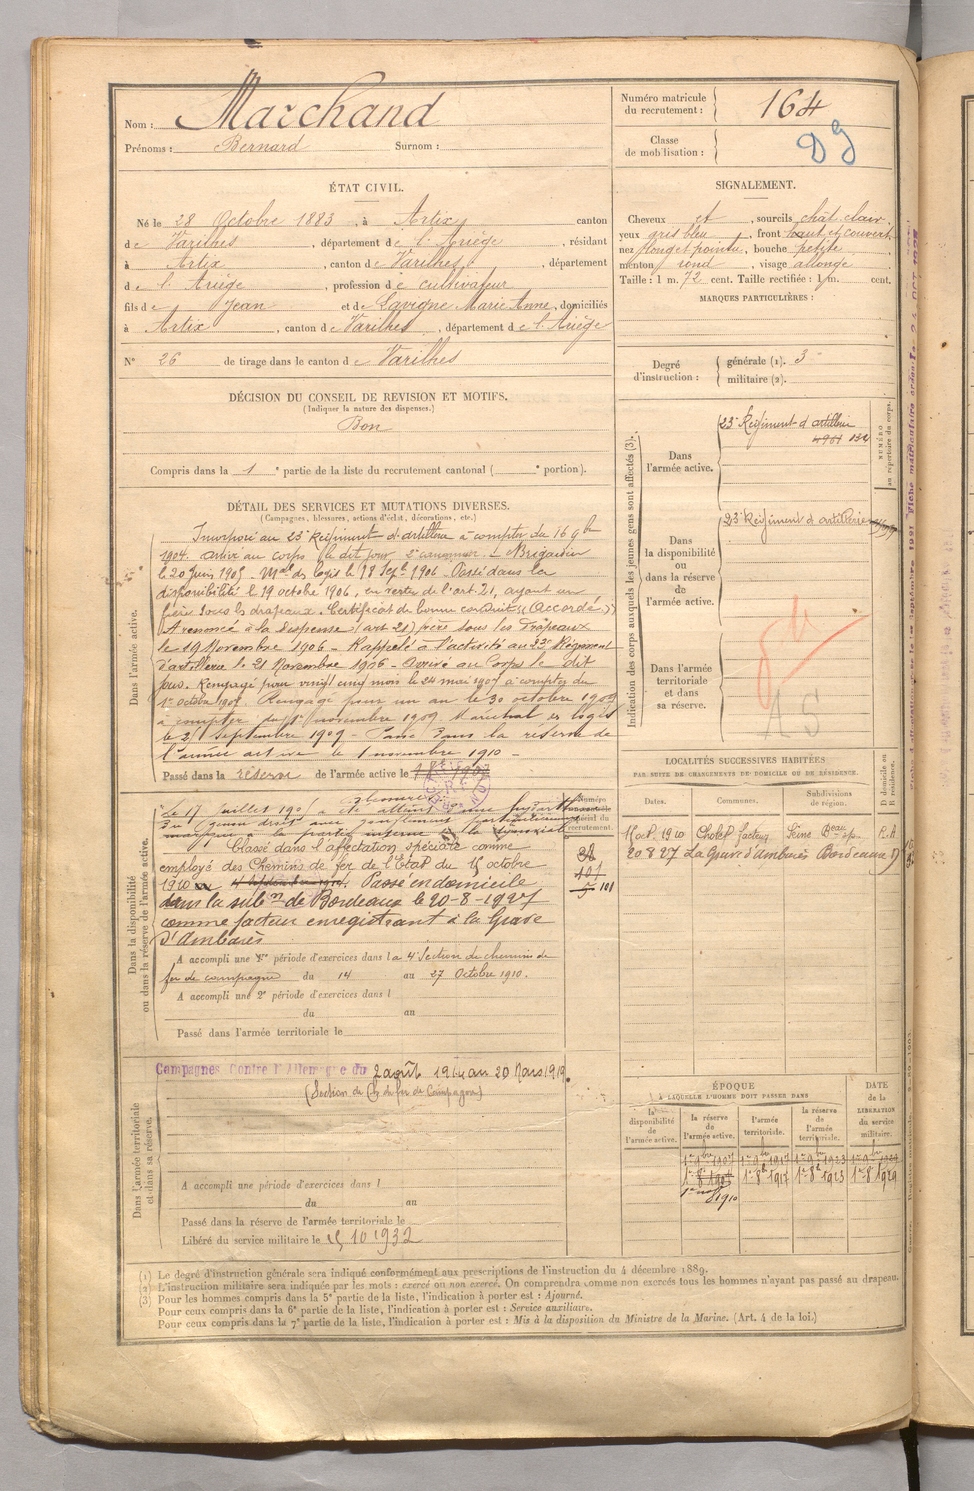 Nom : Marchand
Prénoms : Bernard Surnom :
Numéro matricule du recrutement : 164
Classe de mobilisation :
ÉTAT CIVIL.
Né le 28 Octobre 1883, à Artix, canton
de Varilhes, département de l'Ariège, résidant
à Artix, canton de Varilhes, département
de l'Ariège, profession de cultivateur
fils de Jean et de Lavigne Marie Anne, domiciliés
à Artix, canton de Varilhes, département de l'Ariège
N° 26 de tirage dans le canton de Varilhes
SIGNALEMENT.
Cheveux et, sourcils chât. clair.
yeux gris bleu, front haut et couvert
nez long et pointu, bouche petite
menton rond, visage allongé
Taille : 1 m. 72 cent. Taille rectifiée : 1 m. cent.
MARQUES PARTICULIÈRES :
Degré d'instruction : générale (1). 3
militaire (2).
DÉCISION DU CONSEIL DE REVISION ET MOTIFS.
(Indiquer la nature des dispenses.)
Bon
Compris dans la 1e partie de la liste du recrutement cantonal ( e portion).
DÉTAIL DES SERVICES ET MUTATIONS DIVERSES.
(Campagnes, blessures, actions d'éclat, décorations, etc.)
Dans l'armée active.
Incorporé au 23e Régiment d'artillerie à compter du 16 9bre
1904. Arrivé au corps le dit jour 2e canonnier. Brigadier
le 20 Juin 1905 - Mal des logis le 18 Sept. 1906. Passé dans la
disponibilité le 19 octobre 1906, en vertu de l'art. 21, ayant un
frère sous les drapeaux. Certificat de bonne conduite "Accordé"
A renoncé à la dispense (art 21) frère sous les Drapeaux
le 19 Novembre 1906 - Rappelé à l'activité au 23e Régiment
d'artillerie le 21 Novembre 1906 - arrivé au Corps le dit
jour. Rengagé pour vingt cinq mois le 24 mai 1907 à compter du
1er octobre 1907. Rengagé pour un an le 30 octobre 1909
à compter du 1er novembre 1909. Maréchal des logis
le 21 Septembre 1909 - Passé dans la réserve de
l'armée active le 1 novembre 1910 -
Passé dans la réserve de l'armée active le
Dans la disponibilité ou dans la réserve de l'armée active.
Le 17 Juillet
Classé dans l'affectation spéciale comme
employé des Chemins de fer de l'Etat du 15 octobre
1910 Passé en domicile
dans la subon de Bordeaux le 20-8-1927
comme facteur enregistrant à la Grave
d'Ambarès
A accompli une 1re période d'exercices dans la 4e Section de chemins de
fer de campagne du 14 au 27 Octobre 1910.
A accompli une 2e période d'exercices dans l
du au
Passé dans l'armée territoriale le
Numéro spécial du recrutement.
101
Dans l'armée territoriale et dans sa réserve.
Campagnes Contre l'Allemagne du 2 août 1914 au 20 Mars 1919.
(Section de Ch. de fer de Campagne)
A accompli une période d'exercices dans l
du au
Passé dans la réserve de l'armée territoriale le
Libéré du service militaire le 15 10 1932
Indication des corps auxquels les jeunes gens sont affectés (3).
NUMÉRO au répertoire du corps.
Dans l'armée active.
23e Régiment d'artillerie
Dans la disponibilité ou dans la réserve de l'armée active.
23e Régiment d'artillerie
Dans l'armée territoriale et dans sa réserve.
AS
LOCALITÉS SUCCESSIVES HABITÉES
PAR SUITE DE CHANGEMENTS DE DOMICILE OU DE RÉSIDENCE.
Dates. Communes. Subdivisions de région. D domicile ou R résidence.
15 oct. 1910 Cholet facteur Seine R.A
20 8 27 La Grave d'Ambarès Bordeaux D
ÉPOQUE
À LAQUELLE L'HOMME DOIT PASSER DANS
la disponibilité de l'armée active. la réserve de l'armée active. l'armée territoriale. la réserve de l'armée territoriale. DATE de la LIBÉRATION du service militaire.
1er 9bre 1907 1er 9bre 1917 1er 9bre 1923
1er 8bre 1917 1er 8bre 1923 1er 8bre 1929
1er nov 1910
(1) Le degré d'instruction générale sera indiqué conformément aux prescriptions de l'instruction du 4 décembre 1889.
(2) L'instruction militaire sera indiquée par les mots : exercé ou non exercé. On comprendra comme non exercés tous les hommes n'ayant pas passé au drapeau.
(3) Pour les hommes compris dans la 5e partie de la liste, l'indication à porter est : Ajourné.
Pour ceux compris dans la 6e partie de la liste, l'indication à porter est : Service auxiliaire.
Pour ceux compris dans la 7e partie de la liste, l'indication à porter est : Mis à la disposition du Ministre de la Marine. (Art. 4 de la loi.)